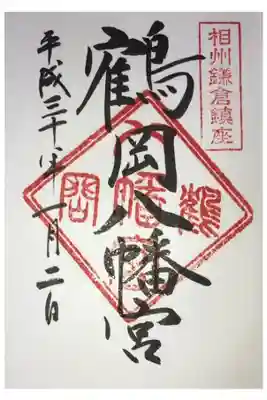 相州鎌倉鎮座
鶴岡八幡宮
平成二十八年一月二日